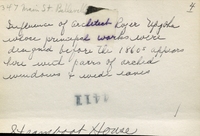 347 Main St.
4
Influence of architect Roger Upjohn
whose principal works were
designed before the 1860s appears
here with pairs of arched
windows & wide eaves
1111
Steamboat House